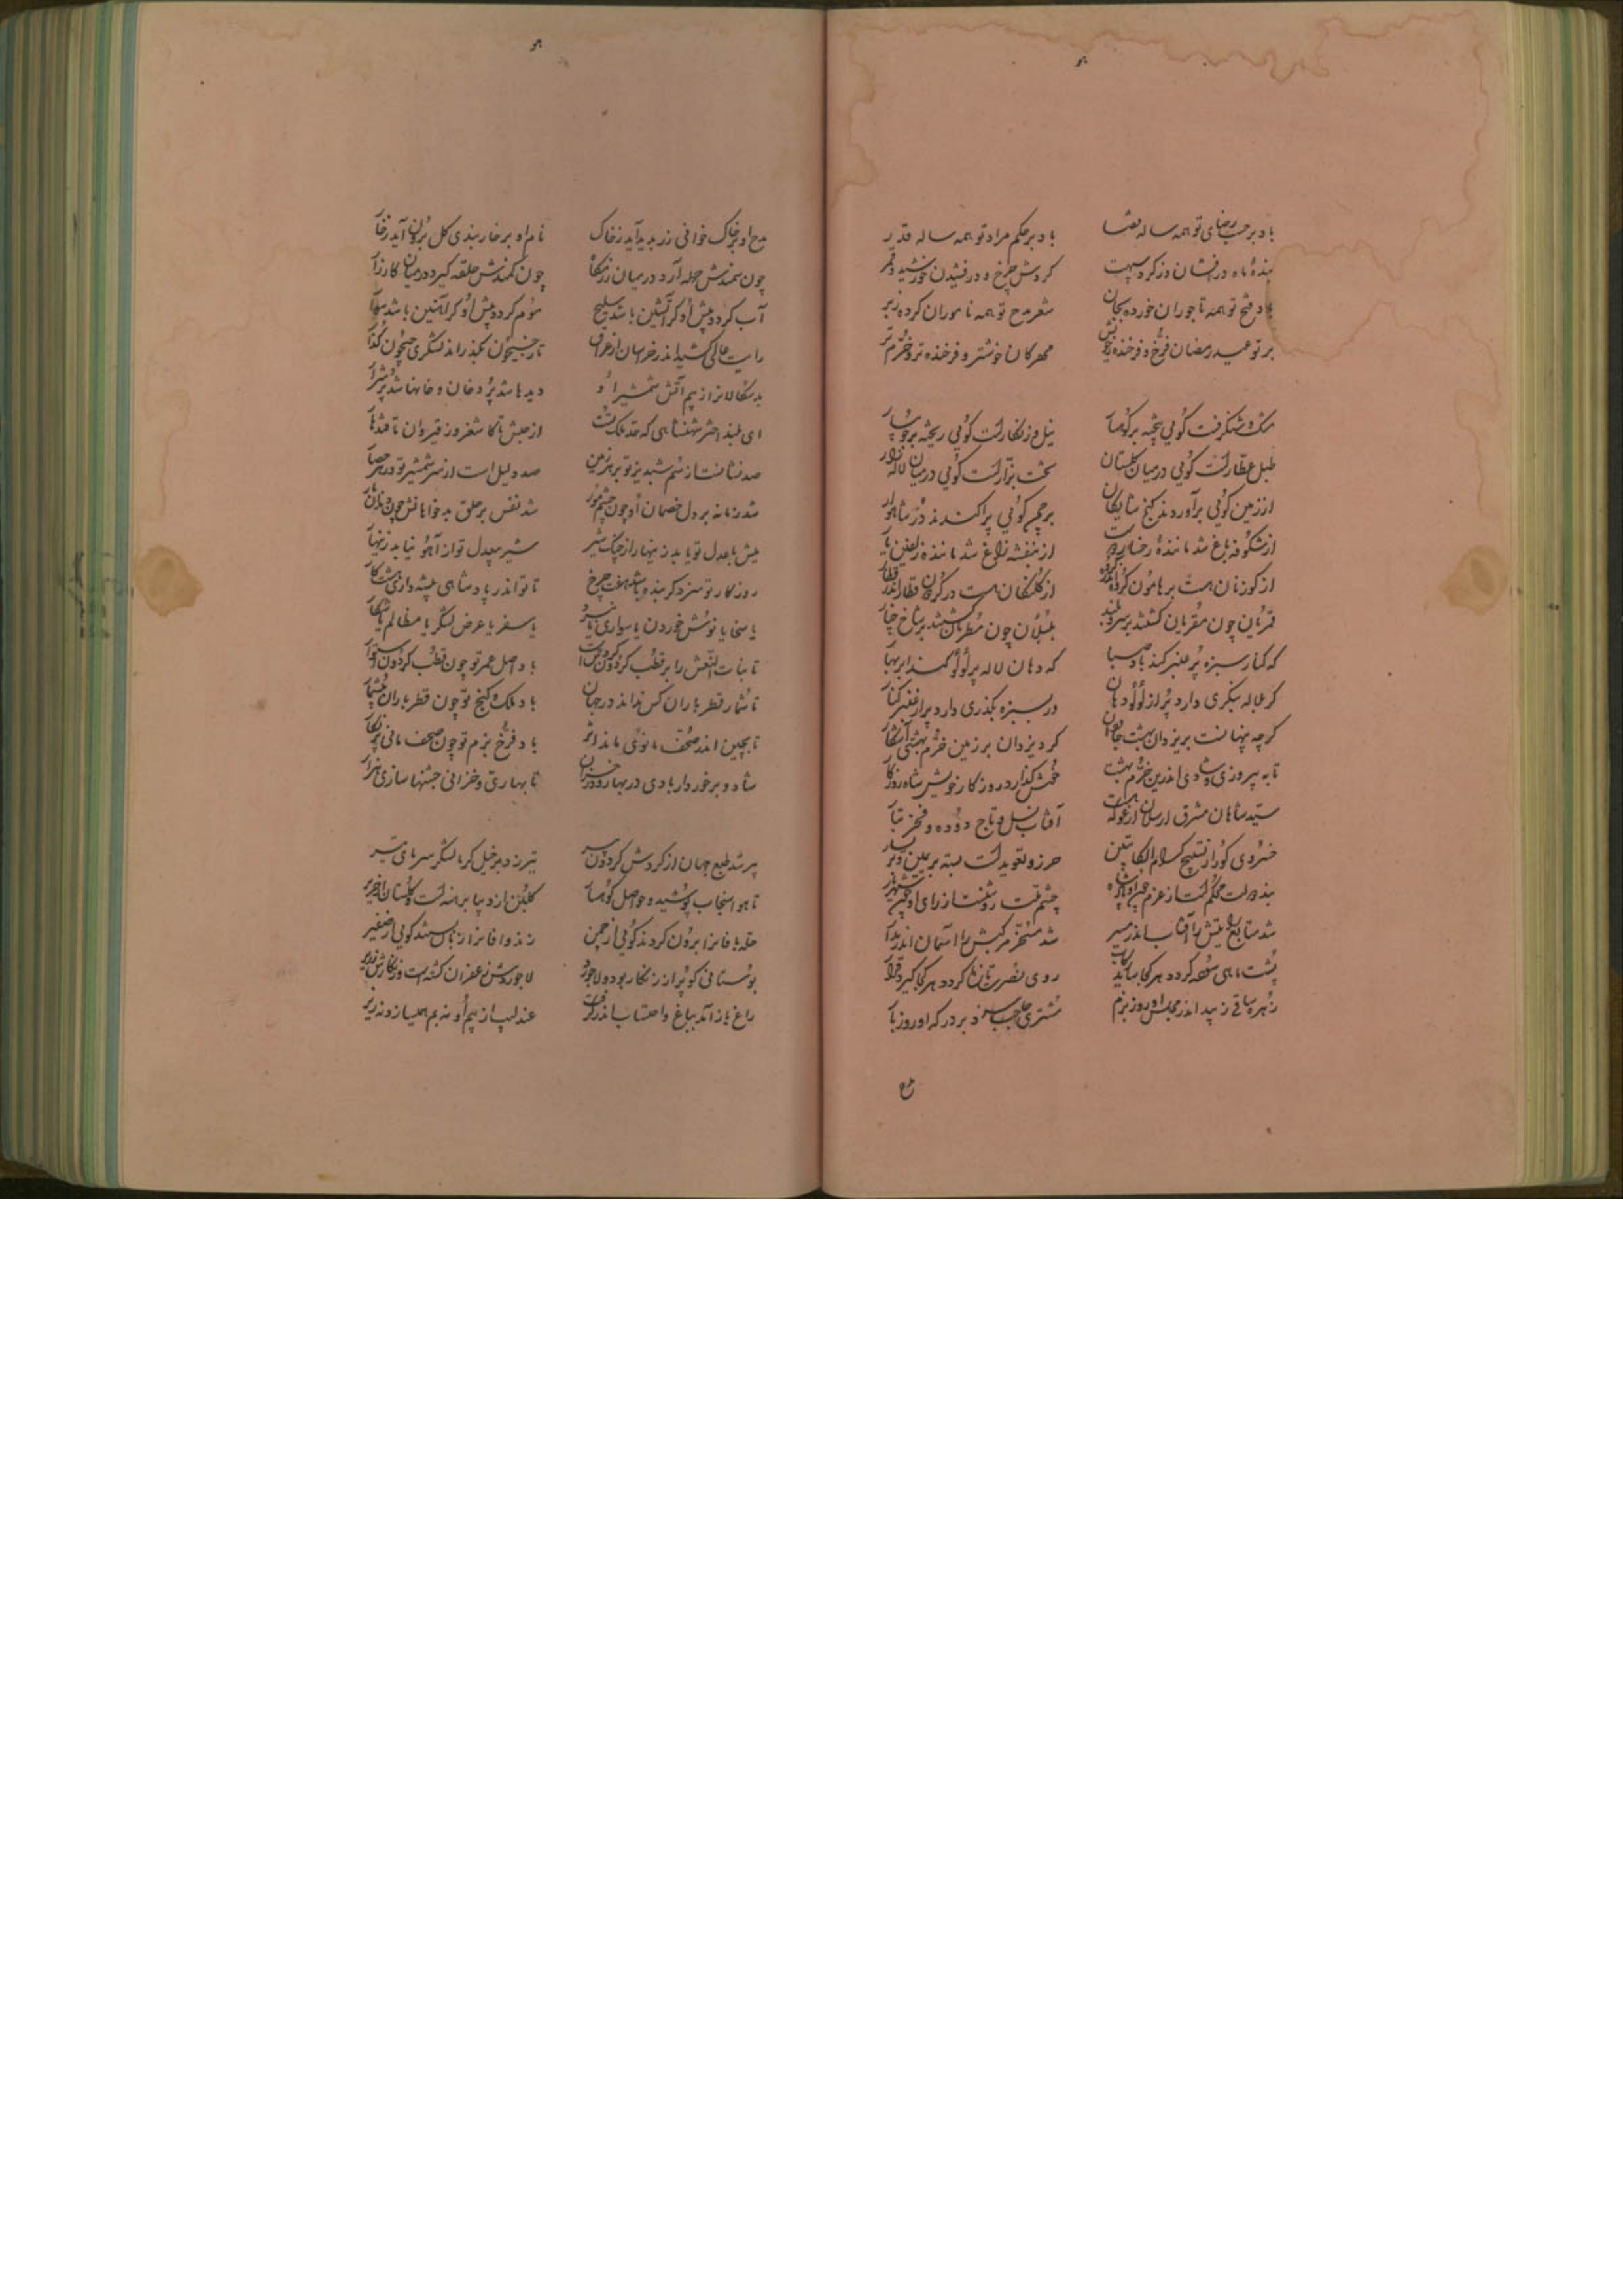 باد بر حسب رضای تو همه ساله قضا باد بر حکم مراد تو همه ساله قدر
بنده ماه درفشان وز کرد سپهت کردش چرخ و درفشیدن خورشید و قمر
باد فتح تو همه تاجوران خورده بجان شعر مدح تو همه ناموران کرده زبر
بر تو عید رمضان فرخ و فرخنده مهرکان خوشتر و فرخنده تر و خرم تر
مشک و شنکرفت کوئی بیخته بر کوهسار نیل و زنکارست کوئی ریخته بر جویبار
طبل عطارست کوئی در میان کلستان تخت بزازست کوئی در میان لاله زار
از زمین کوئی برآوردند کنج شایکان بر چمن کوئی پراکندند در شاهوار
از شکوفه باغ شد ماننده رخسار دوست از بنفشه راغ شد ماننده زلفین یار
از کوزنان هست بر هامون کروه اندر کروه از کلنکان هست در کردون قطار اندر قطار
قمریان چون مقریان کشتند بر سرو بلند بلبلان چون مطربان کشتند بر شاخ چنار
که کنار سبزه پر عنبر کند باد صبا که دهان لاله پر لولو کند ابر بهار
کر بلاله بنکری دارد پر از لولو دهان ور بسبزه بکذری دارد پر از عنبر کنار
کرچه پنهانست بر یزدان بهشت جاودان کرد یزدان بر زمین خرم بهشتی آشکار
تا به پیروزی و شادی اندرین خرم بهشت خوش کذارد روزکار خویش شاه روزکار
سید شاهان مشرق ارسلان ارغو که هست آفتاب نسل و تاج دوده و فخر تبار
خسروی کو را ز تسبیح کرام الکاتبین حرز و تعویذست بسته بر یمین و بر یسار
بند دولت محکم است از عزم چشم ملت روشنست از رای او
شد متابع رایتش را آفتاب اندر مسیر شد مسخر مرکبش را آسمان اندر مدار
پشت ماهی سوده کردد هر کجا ساید رکاب روی نصرت تازه کردد هر کجا کیرد قرار
زهره ساقی زیبد اندر مجلس او روز بزم مشتری حاجب سزد بر درکه او روز بار
مدح او بر خاک خوانی زر پدید آید ز خاک نام او بر خار بندی کل برون آید ز خار
چون سمندش حمله آرد در میان رزمکاه چون کمندش حلقه کیرد در میان کارزار
آب کردد پیش او کر آتشین باشد سلیح موم کردد پیش او کر آهنین باشد سوار
رایت عالی کشید اندر خراسان از عراق تا ز جیحون بکذراند لشکری جیحون کذار
بدسکالانرا ز بیم آتش شمشیر او دیدها شد پر دخان و خانها شد پر شرار
ای بلند اختر شهنشاهی که حد ملک تست از حبش تا کاشغر وز قیروان تا قندهار
صد نشانست از سم شبدیز تو بر هر زمین صد دلیل است از سر شمشیر تو در هر حصار
شد زمانه بر دل خصمان او چون چشم مور شد نفس بر حلق بدخواهانش چون دندان مار
میش با عدل تو یابد زینهار از چنک شیر شیر بیعدل تو از آهو نیابد زینهار
روزکار تو سزد کر بنده باشد هفت چرخ تا تو اندر پادشاهی پیشه داری هشت کار
یا سخا یا نوش خوردن یا سواری یا نبرد یا سفر یا عرض لشکر یا مظالم یا شکار
تا بنات النعش را بر قطب کردون کردش است باد اصل عمر تو چون قطب کردون استوار
تا شمار قطر باران کس نداند در جهان باد ملک و کنج تو چون قطر باران بیشمار
تا بچین اندر صحف مانوی ماند اثر باد فرخ بزم تو چون صحف مانی پر نکار
شاد و برخوردار بادی در بهار و در خزان تا بهاری و خزانی جشنها سازی هزار
پر شد طبع جهان از کردش کردون پیر تیره زد بر خیل کرما لشکر سرمای تیر
تا هوا سنجاب پوشید و حواصل کوهسار کلبن از دیبا برهنه است و کلستان از حریر
حله بافانرا برون کردند کوئی از چمن زندوافانرا زبان بستند کوئی از صفیر
بوستانی کو پر از زنکار بود و لاجورد لاجوردش زعفران کشته است و زنکارش زریر
زاغ باز آمد بباغ و احتساب اندر کرفت عندلیب از بیم او نه بم همی سازد نه زیر